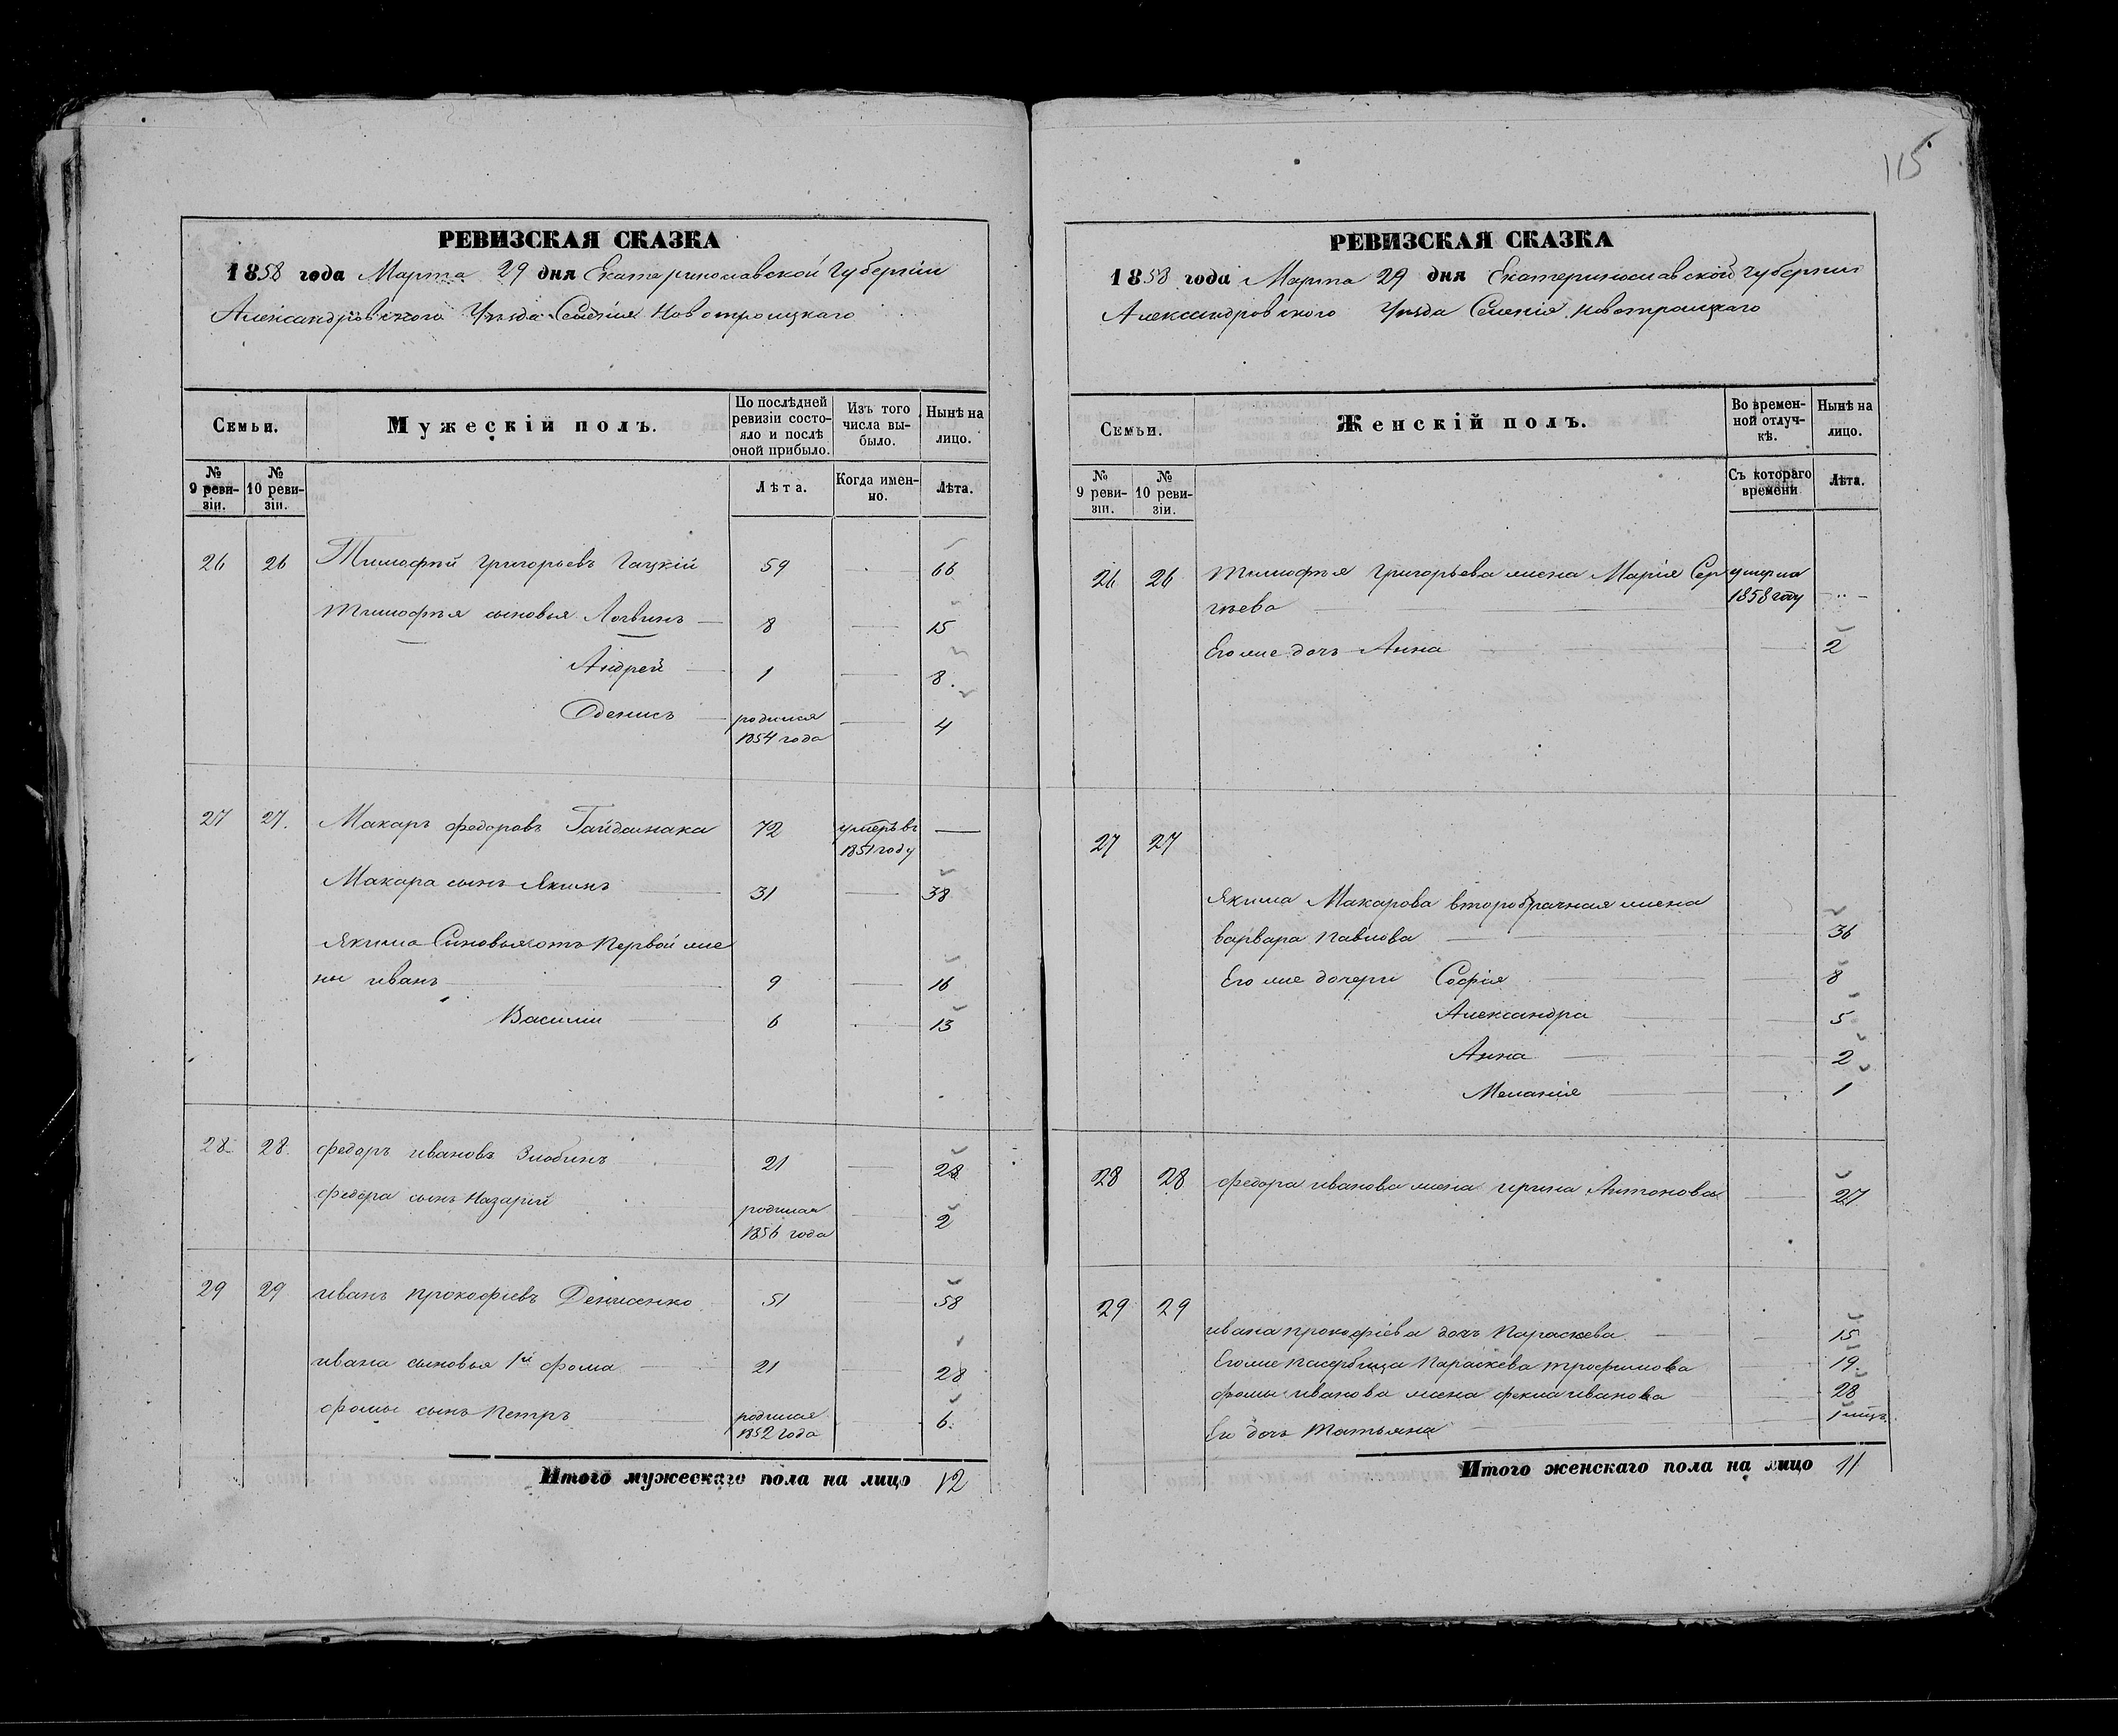 115
РЕВИЗСКАЯ СКАЗКА
1858 года Марта 29 дня Екатеринославской губернии
Александровского Уезда Селенія Новотроицкаго
Семьи.
Мужескій полъ.
По послѣдней ревизіи состояло и послѣ оной прибыло.
Изъ того числа выбыло.
Нынѣ на лицо.
№ 9 ревизіи.
№ 10 ревизіи.
Лѣта.
Когда именно.
Лѣта.
26 26 Тимофѣй Григорьевъ Гацкій 59 — 66
Тимофѣя сыновья Логвинъ — 8 — 15
Андрей — 1 — 8
Денисъ — родился 1854 года — 4
27 27. Макаръ федоровъ Гайдамака 72 умеръ въ 1851 году —
Макара сынъ Якимъ 31 — 38
Якима Синовья отъ Первой же
ны иванъ 9 — 16
Василіи 6 — 13
28 28. федоръ ивановъ Злобинъ 21 — 28
федора сынъ Назарій родился 1856 года — 2
29 29 иванъ Прокофіевъ Денисенко 51 — 58
ивана сыновья 1й фома 21 28
фомы сынъ Петръ родился 1852 года 6.
Итого мужескаго пола на лицо 12
РЕВИЗСКАЯ СКАЗКА
1858 года Марта 29 дня Екатеринославской губерніи
Александровского Уѣзда Селенія Новотроицкаго
Семьи.
Женскій полъ.
Во временной отлучкѣ.
Нынѣ на лицо.
№ 9 ревизіи.
№ 10 ревизіи.
Съ котораго времени
Лѣта.
26 26 Тимофѣя Григорьева жена Марія Сер умерла
гѣева — 1858 году —
Его же дочь Анна — 2
27 27
Якима Макарова второбрачная жена
варвара Павлова — 36
Его же дочери Софія — 8
Александра — 5
Анна — 2
Меланія — 1
28 28 федора иванова жена ирина Антонова — 27
29 29
ивана Прокофіева дочь Параскева — 15
Его же Пасербица Параскева Трофимова 19
фомы иванова жена фекла иванова — 28
Его дочь Татьяна — 1 мщъ
Итого женскаго пола на лицо 11